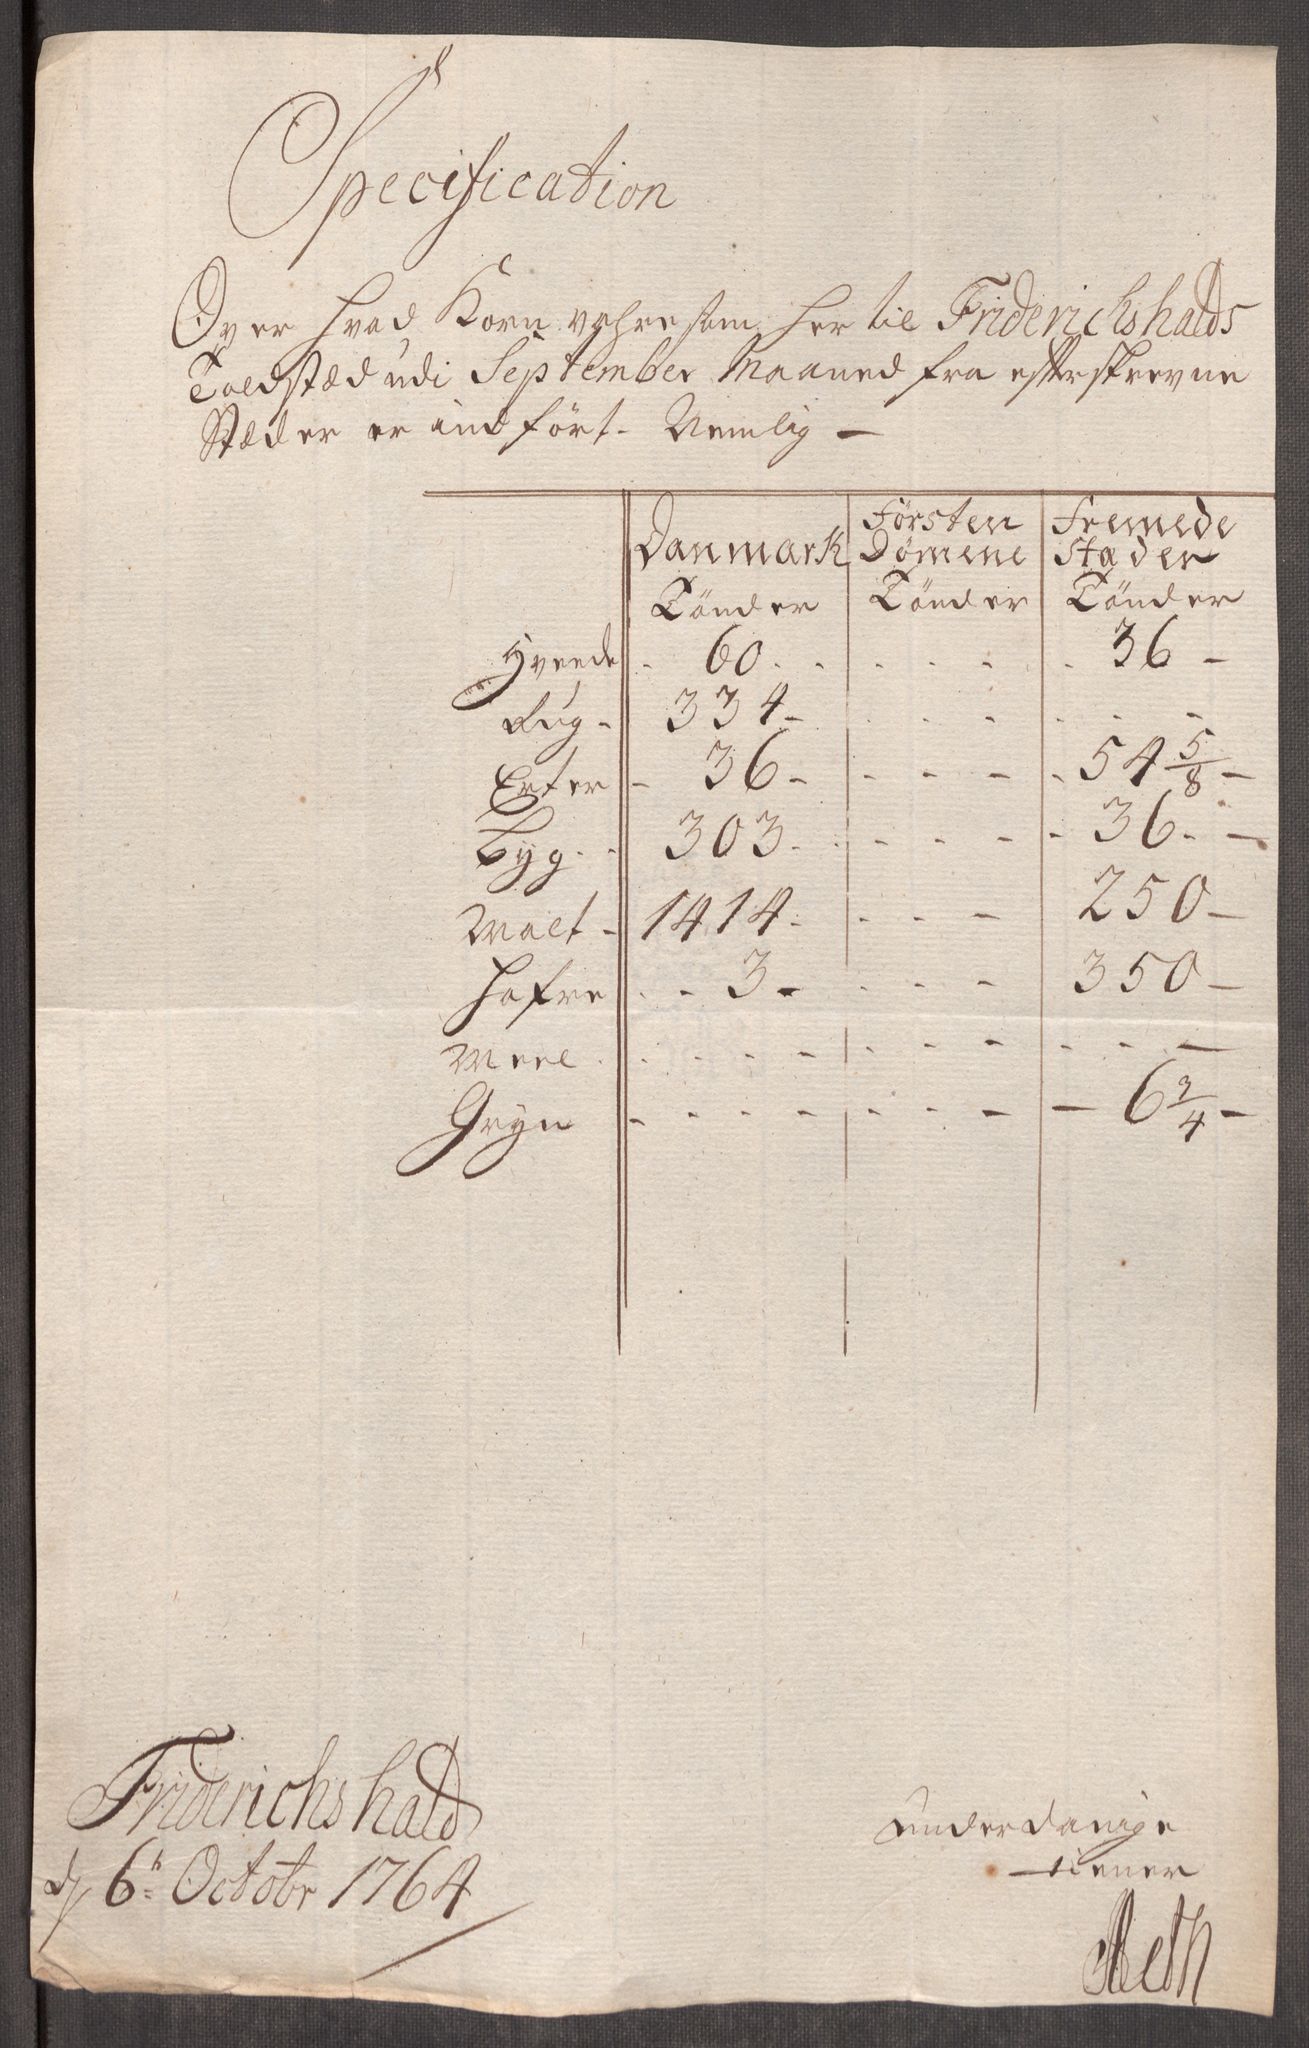 Specification
Over hvad Korn vahre som her til Friderichshalds
Toldstæd udi September Maaned fra efterskrevne
Stæder er indført. Nemlig —
Danmark Førsten Fremede
Dømene Stæder
Tönder Tönder Tönder
Hveede - 60 - - - - 36 -
Rug - 334 - - - - - - -
Erter - 36 - - - - 54 5/8 -
Byg - 303 - - - - 36 - -
Malt - 1414 - - - - 250 -
Hafre - - 3 - - - - 350 -
Meel - - - - - - - - - -
Gryn - - - - - - - - 6 3/4 -
Friderichshald
d 6t Octobr 1764
underdanige
tiener